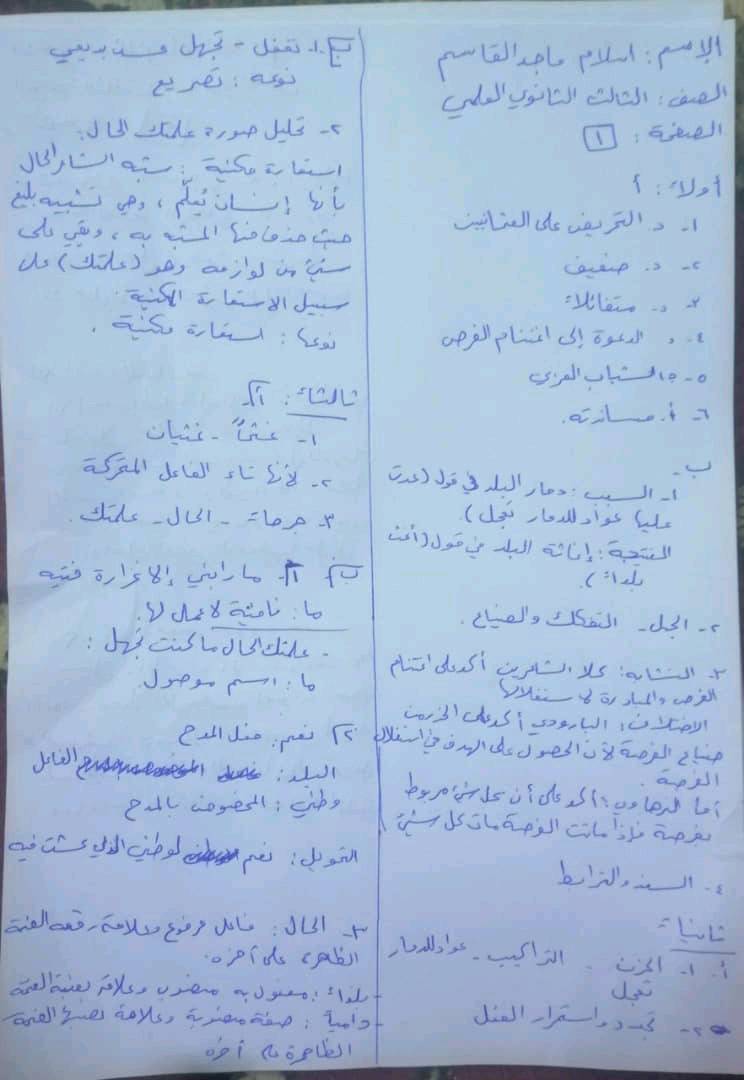 الإسم: اسلام ماجد القاسم
الصف: الثالث الثانوي العلمي
الصفحة: ١
أولاً: أ
١- د. التحريض على العثمانيين
٢- د. ضعيف
٣- د. متفائلاً
٤- د الدعوة إلى اغتنام الفرص
٥- د. الشباب العربي
٦- أ. مساندته.
ب-
١- السبب: دمار البلد في قول (عدت
عليها عواد للدمار تعجل).
النتيجة: إغاثة البلد في قول (أغث
بلداً).
٢- الجهل - التفكك والضياع.
٣- التشابه: كلا الشاعرين أكد على اغتنام
الفرص والمبادرة لاستغلالها
الاختلاف: البارودي أكد على الحذر من
ضياع الفرصة لأن الحصول على الهدف في استغلال
الفرصة.
أما أكد على أن كل شيء مربوط
بفرصة فإذا ماتت الفرصة مات كل شيء
٤- السند والترابط
ثانياً
أ. ١- الحزن - التراكيب - عواد للدمار
تعجل
٢- تجدد واستمرار الفعل
ب ١- تغفل - تجهل بديعي
نوعه: تصريع
٢- تحليل صورة علمتك الحال:
استعارة مكنية: شبه الشاعر الحال
بأنها إنسان يُعلّم، وهي تشبيه بليغ
حيث حذف منها المشبه به، وبقي على
شيء من لوازمه وهو (علمتك) على
سبيل الاستعارة المكنية.
نوعها: استعارة مكنية.
ثالثاً: أ
١- غشماً - غشيان
٢- لأنها تاء الفاعل المتحركة
٣- - الحال - علمتك.
ب أ. ما رابني إلا غرارة فتيه
ما: نافية لا عمل لها.
- علمتك الحال ما كنت تجهل:
ما: اسم موصول.
٢ نعم: فعل المدح
البلد: الفاعل
وطني: المخصوص بالمدح
التحويل: نعم لوطني الذي عشت فيه
٣- الحال: فاعل مرفوع وعلامة رفعه الضمة
الظاهرة على آخره.
بلداً: مفعول به منصوب وعلامة نصبه الفتحة
- دامياً: صفة منصوبة وعلامة نصبها الفتحة
الظاهرة على آخره